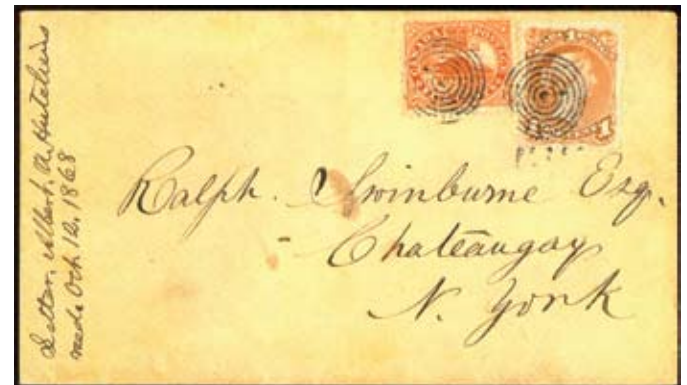 Letter, Albert. A. Hutchins
recd. Oct 12. 1868
CANADA
1
1
Ralph. Swinburne Esq.
- Chateaugay
N. York